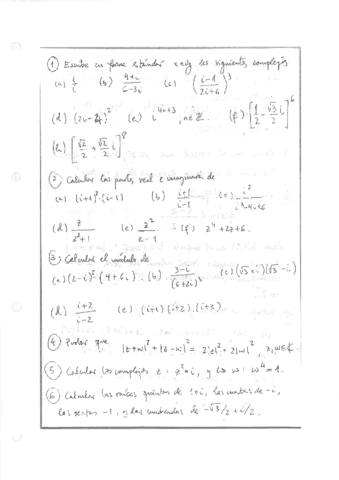 ① Escribe en forma estándar x+iy los siguientes complejos
(a) 1/i (b) (4+i)/(6-3i) (c) ((i-1)/(2i+6))^3
(d) (2i-4)^2 (e) i^{4n+3}, n∈ℤ (f) [1/2 - √3/2 i]^6
(h) [√2/2 + √2/2 i]^8
② Calcular las partes real e imaginaria de
(a) (i+1)^2·(i-1) (b) (i+1)/(i-1) (c) i^2/(i^3-4i+6)
(d) z/(z^2+1) (e) z^2/(z-1) (f) z^4+2z+6.
③ Calcular el módulo de
(a) (2-i)^2·(4+6i) (b) (3-i)/(6+2i)^3 (c) (√3+i)(√3-i)
(d) (i+2)/(i-2) (e) (i+1)(i+2)·(i+3).
④ Probar que |z+w|^2+|z-w|^2 = 2|z|^2+2|w|^2, z,w∈ℂ.
⑤ Calcular los complejos z: z^2=i, y los w: w^4=1.
⑥ Calcular las raíces quintas de 1+i, las cuartas de -i,
las sextas -1, y las de -√3/2+i/2.